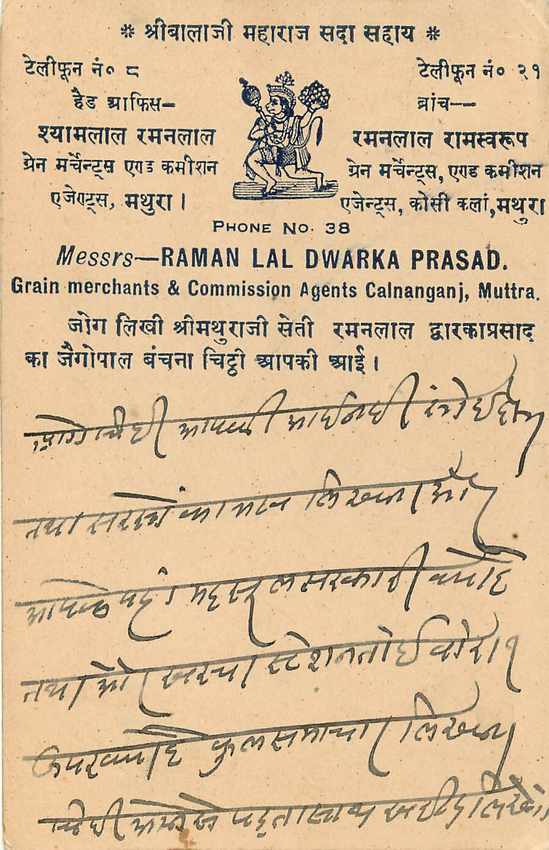 ❋ श्रीबालाजी महाराज सदा सहाय ❋
टेलीफून नं० ८
हैड आफिस–
श्यामलाल रमनलाल
ग्रेन मर्चेन्ट्स एण्ड कमीशन
एजेण्ट्स, मथुरा ।
टेलीफून नं० २१
ब्रांच–—
रमनलाल रामस्वरूप
ग्रेन मर्चेन्ट्स, एण्ड कमीशन
एजेन्ट्स, कोसी कलां, मथुरा
PHONE NO. 38
Messrs—RAMAN LAL DWARKA PRASAD.
Grain merchants & Commission Agents Calnanganj, Muttra.
जोग लिखी श्रीमथुराजी सेती रमनलाल द्वारकाप्रसाद
का जैगोपाल बंचना चिट्ठी आपकी आई ।
आगे चिठी आपकी आई नही
तथा सरसों का भाव लिखना और
आपके यहां महसूल सरकारी क्या है
तथा और खरचा स्टेशन तांई बोरा १
ऊपर क्या है कुल समाचार लिखना
चिठी